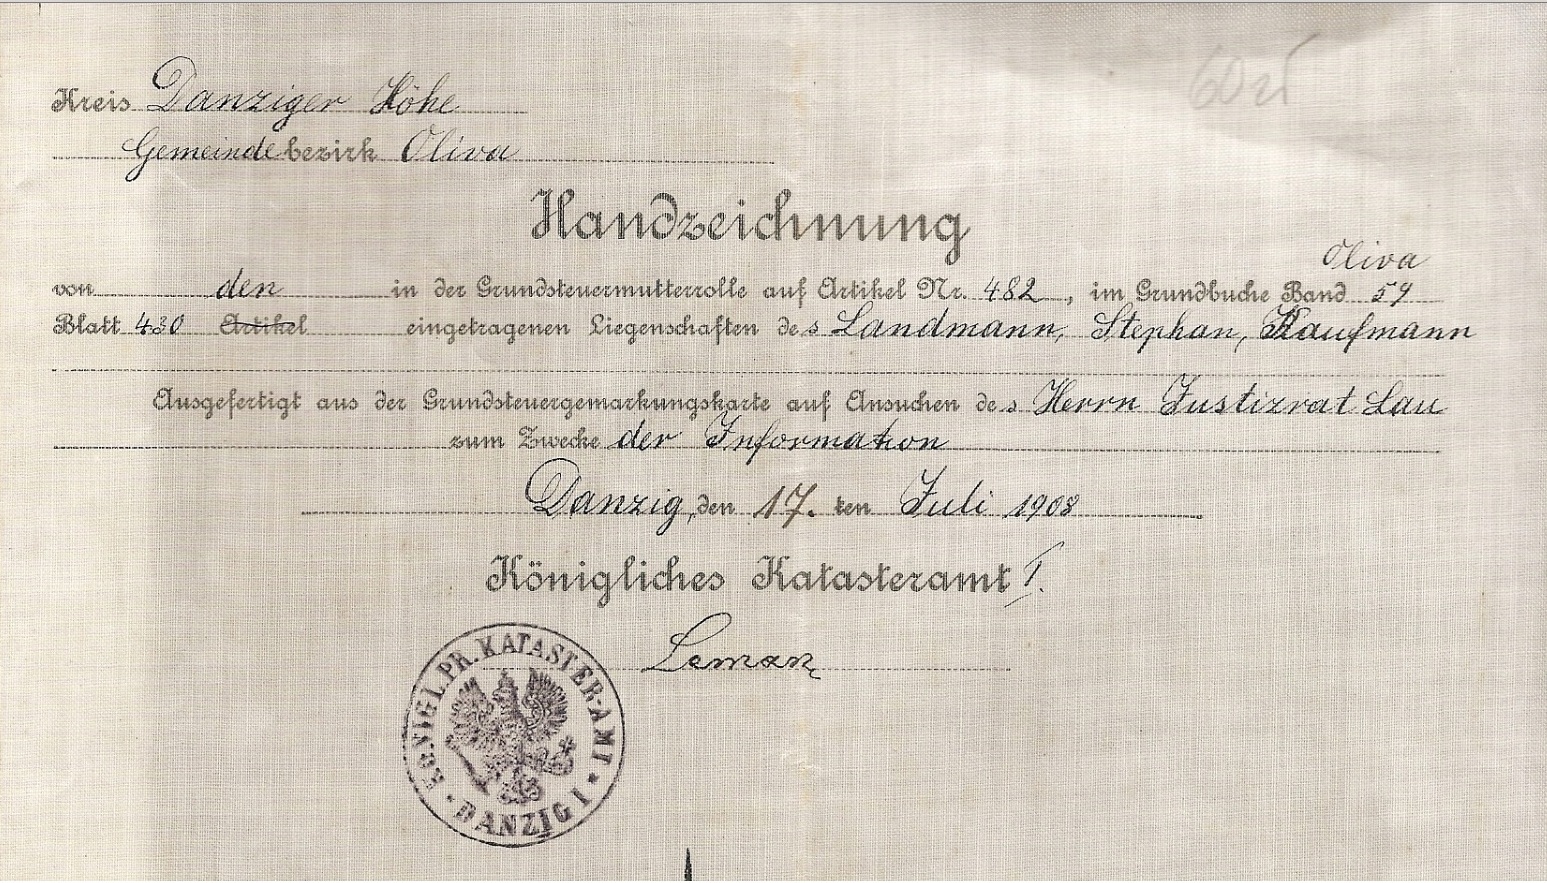 Kreis Danziger Höhe
Gemeindebezirk Oliva
Handzeichnung
Oliva
von den in der Grundsteuermutterrolle auf Artikel Nr. 482, im Grundbuche Band 59
Blatt 430 Artikel eingetragenen Liegenschaften des Landmann, Stephan, Kaufmann
Ausgefertigt aus der Grundsteuergemarkungskarte auf Ansuchen des Herrn Justizrat Lau
zum Zwecke der Information
Danzig, den 17. ten Juli 1908
Königliches Katasteramt I.
Leman
KÖNIGL. PR. KATASTER-AMT
DANZIG I